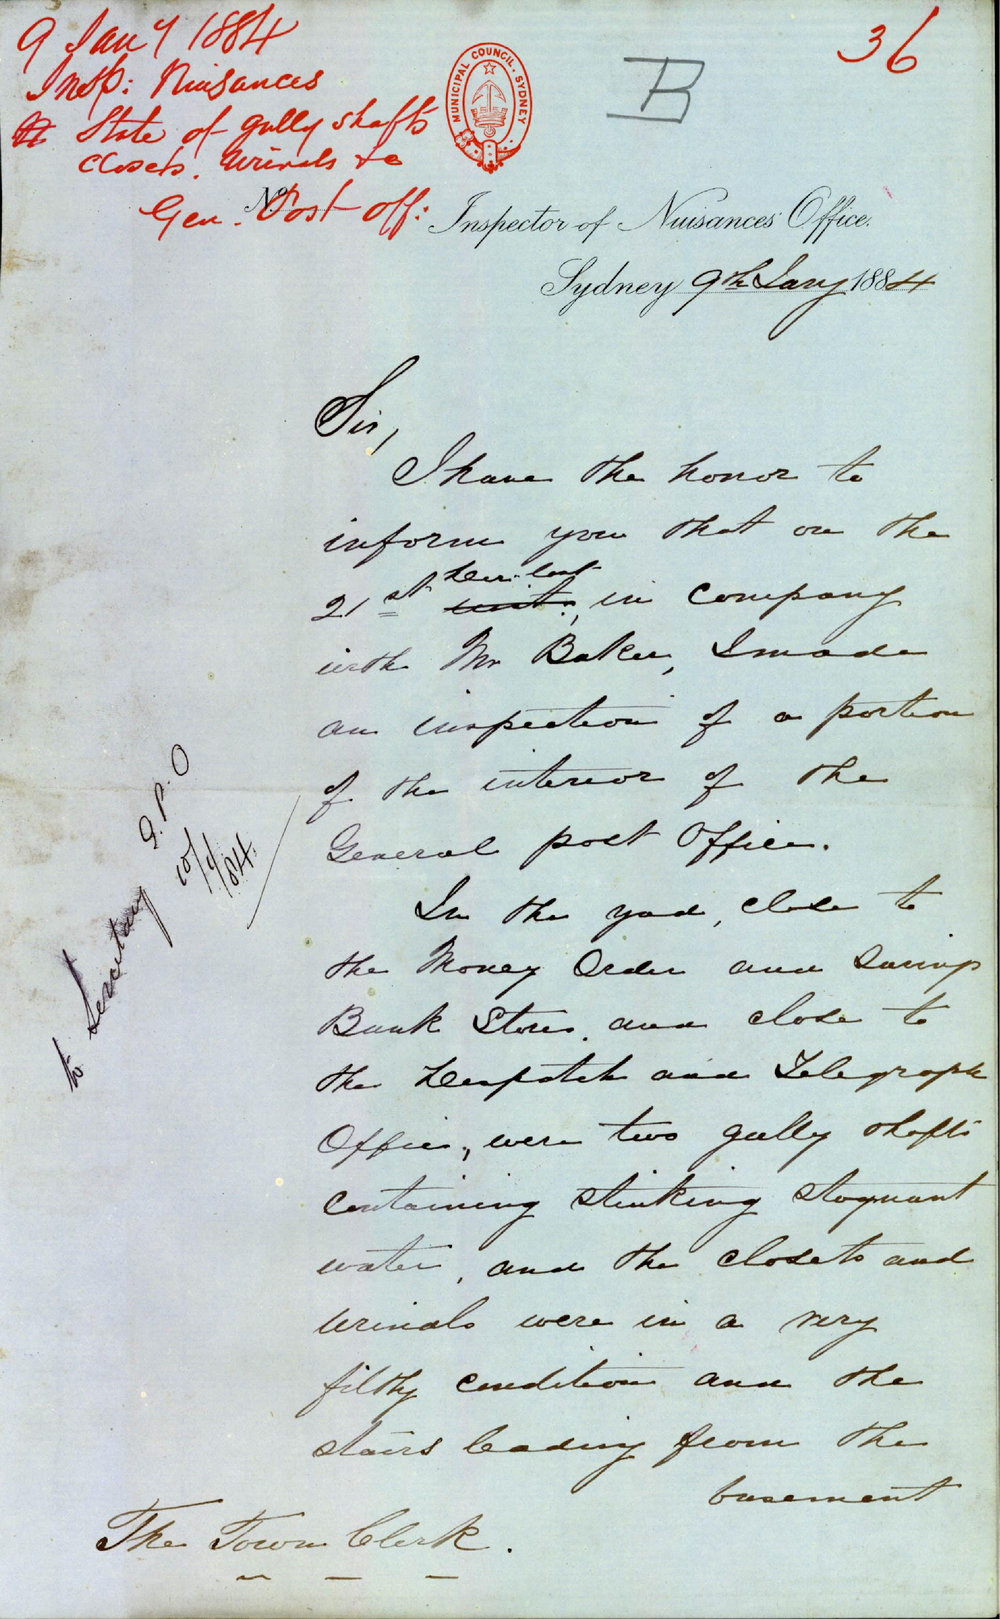 9 Jany 1884
Insp: Nuisances
State of gully shafts
closets. Urinals &c
Gen. Post Off:
MUNICIPAL COUNCIL. SYDNEY
B
36
No.
Inspector of Nuisances Office.
Sydney 9th Jany 1884
Sir,
I have the honor to
inform you that on the
21st Decr. last inst., in company
with Mr Baker, I made
an inspection of a portion
of the interior of the
General post Office.
In the yard, close to
the Money Order and Savings
Bank Stores, and close to
the Despatch and Telegraph
Office, were two gully shafts
containing stinking stagnant
water, and the closets and
urinals were in a very
filthy condition and the
stairs leading from the
basement
The Town Clerk.
to Secretary G.P.O
10/1/84.